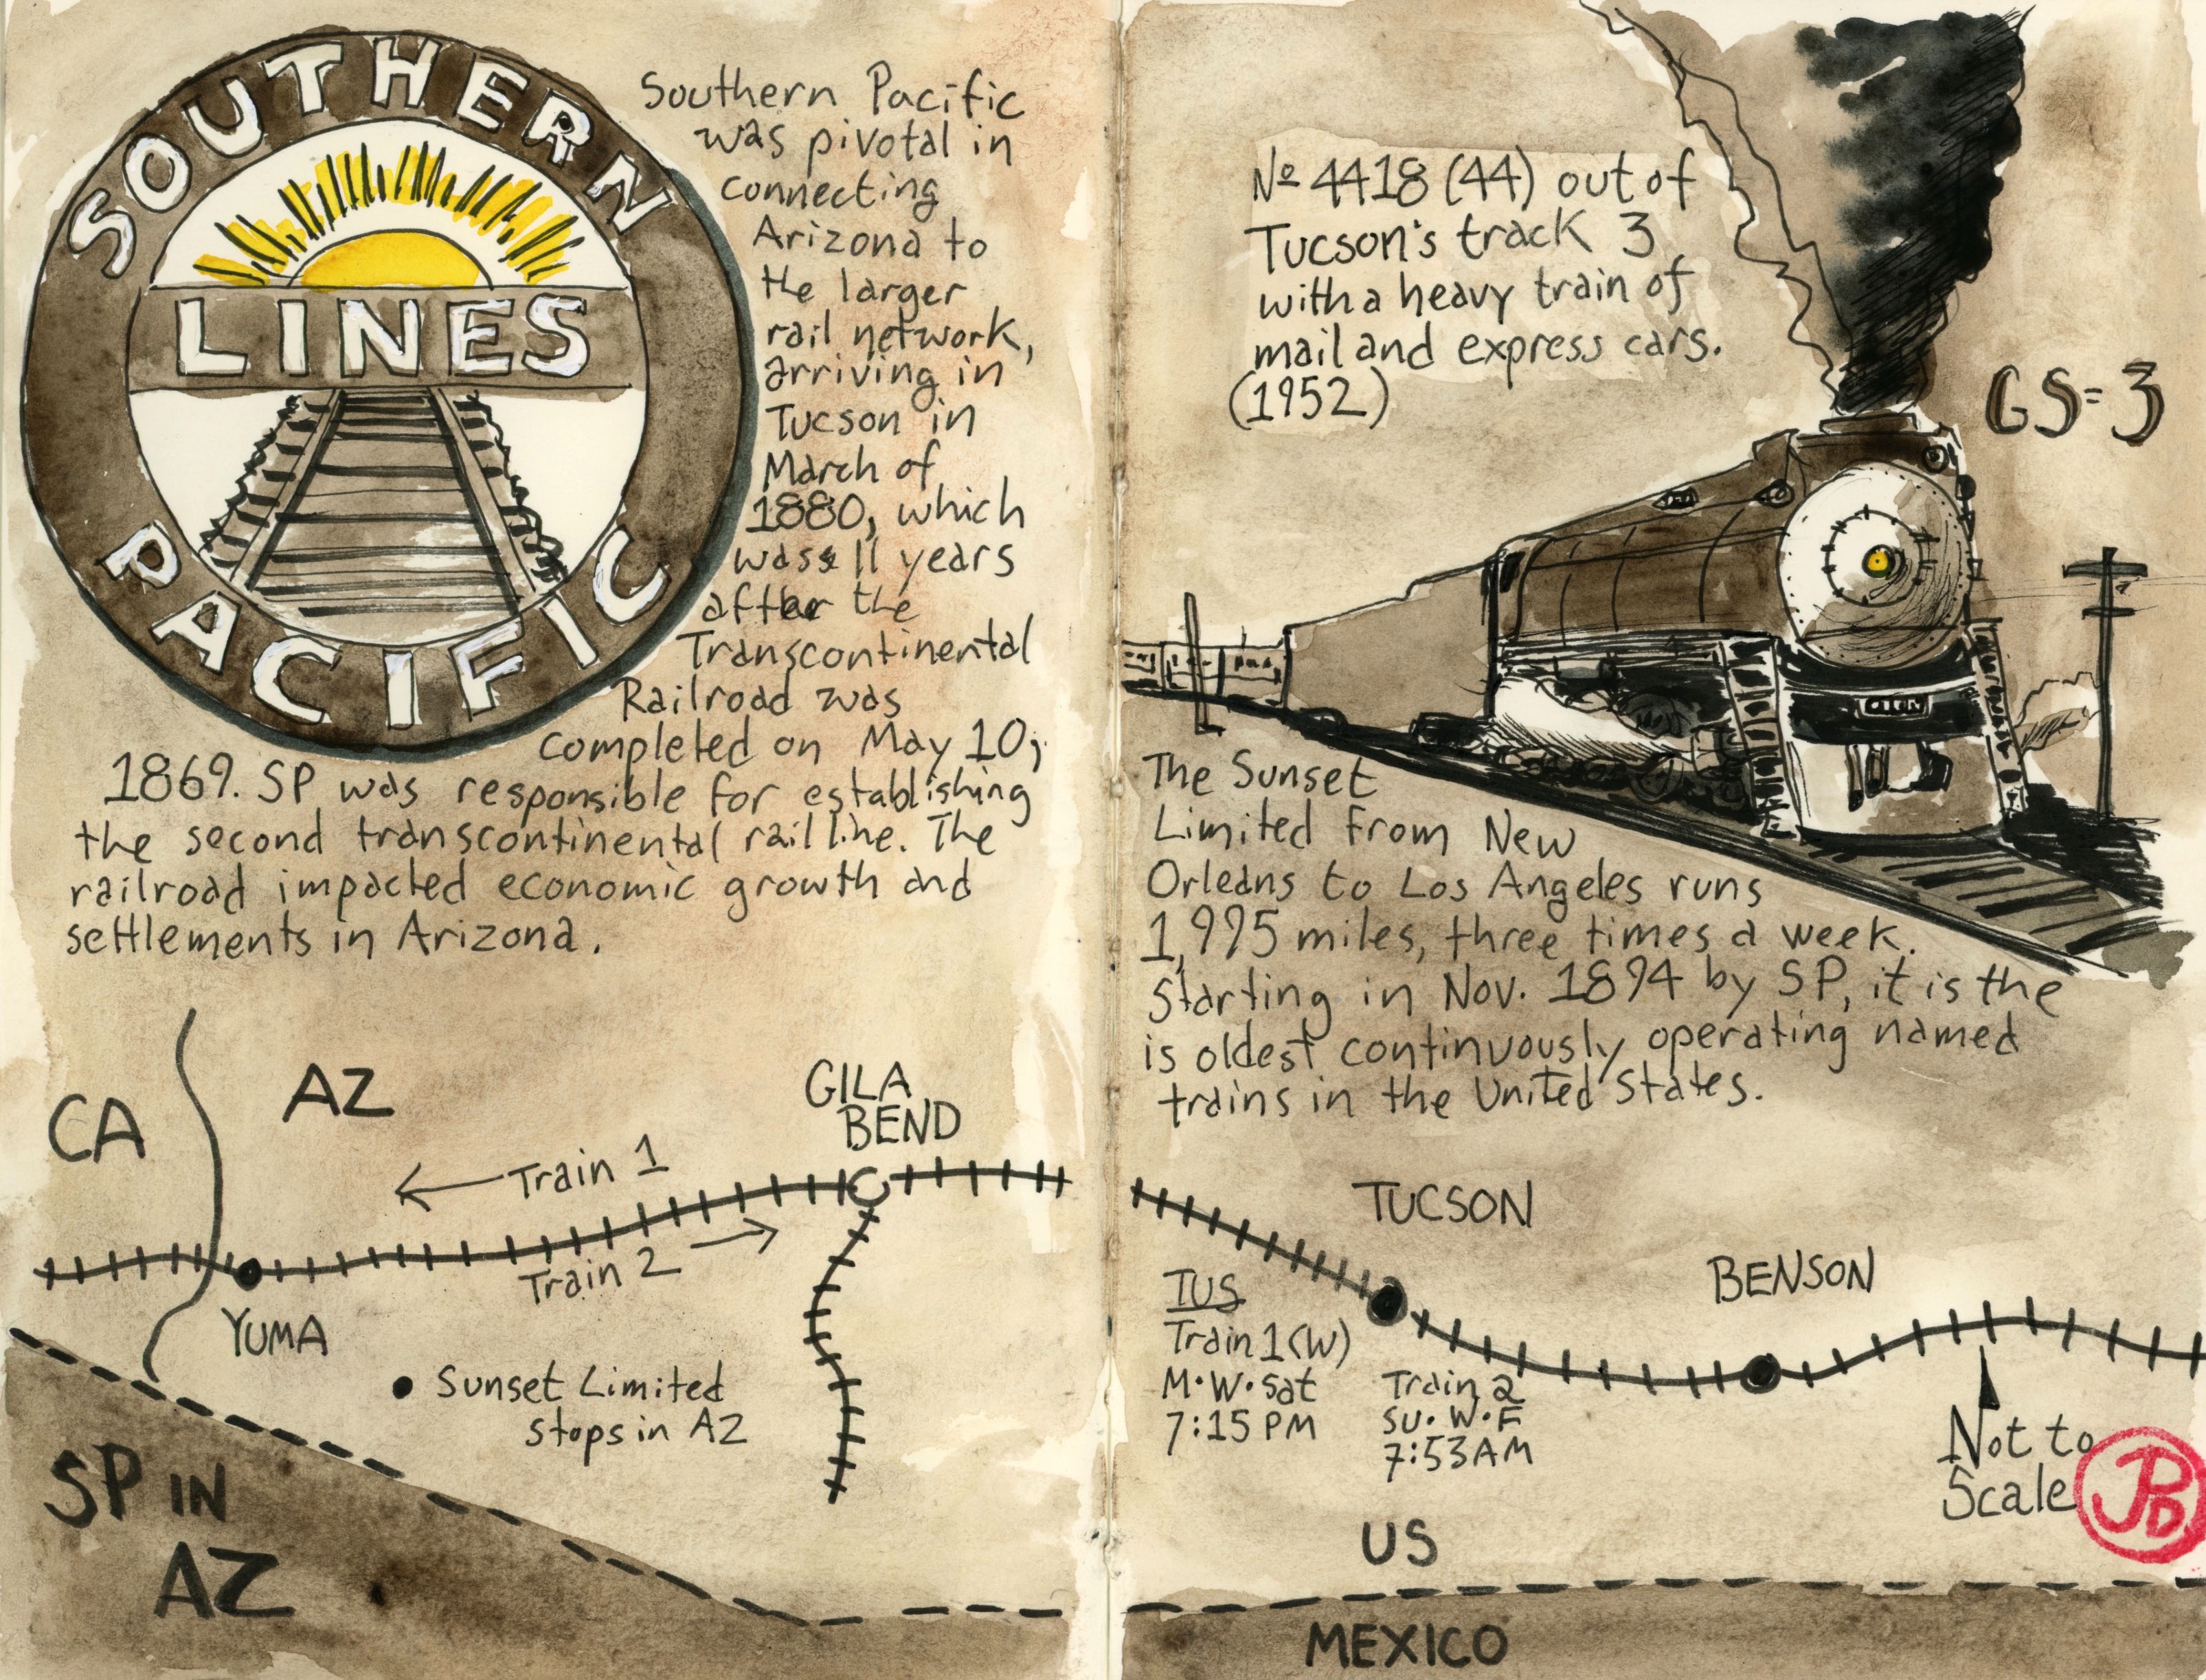 SOUTHERN
LINES
PACIFIC
Southern Pacific
was pivotal in
connecting
Arizona to
the larger
rail network,
arriving in
Tucson in
March of
1880, which
was 11 years
after the
Transcontinental
Railroad was
completed on May 10,
1869. SP was responsible for establishing
the second transcontinental rail line. The
railroad impacted economic growth and
settlements in Arizona.
CA
AZ
GILA
BEND
← Train 1
Train 2 →
YUMA
• Sunset Limited
stops in AZ
SP IN
AZ
Nº 4418 (44) out of
Tucson's track 3
with a heavy train of
mail and express cars.
(1952)
GS-3
The Sunset
Limited from New
Orleans to Los Angeles runs
1,995 miles, three times a week.
Starting in Nov. 1894 by SP, it is the
is oldest continuously operating named
trains in the United States.
TUCSON
BENSON
TUS
Train 1 (W)
M·W·Sat
7:15 PM
Train 2
SU·W·F
7:53AM
Not to
Scale
JPD
US
MEXICO